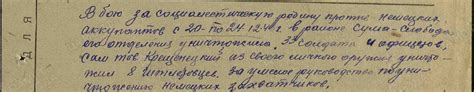 ДЛЯ
В бою за социалистическую родину против немецких
аккупантов с 20 по 24 12.4 г в районе Сума-Слобода
его отделения уничтожило 33 солдата и офицеров,
сам тов Крещенецкий из своего личного оружия уничто-
жил 8 гитлеровцев. За умелое руководство по уни-
чтожению немецких захватчиков,